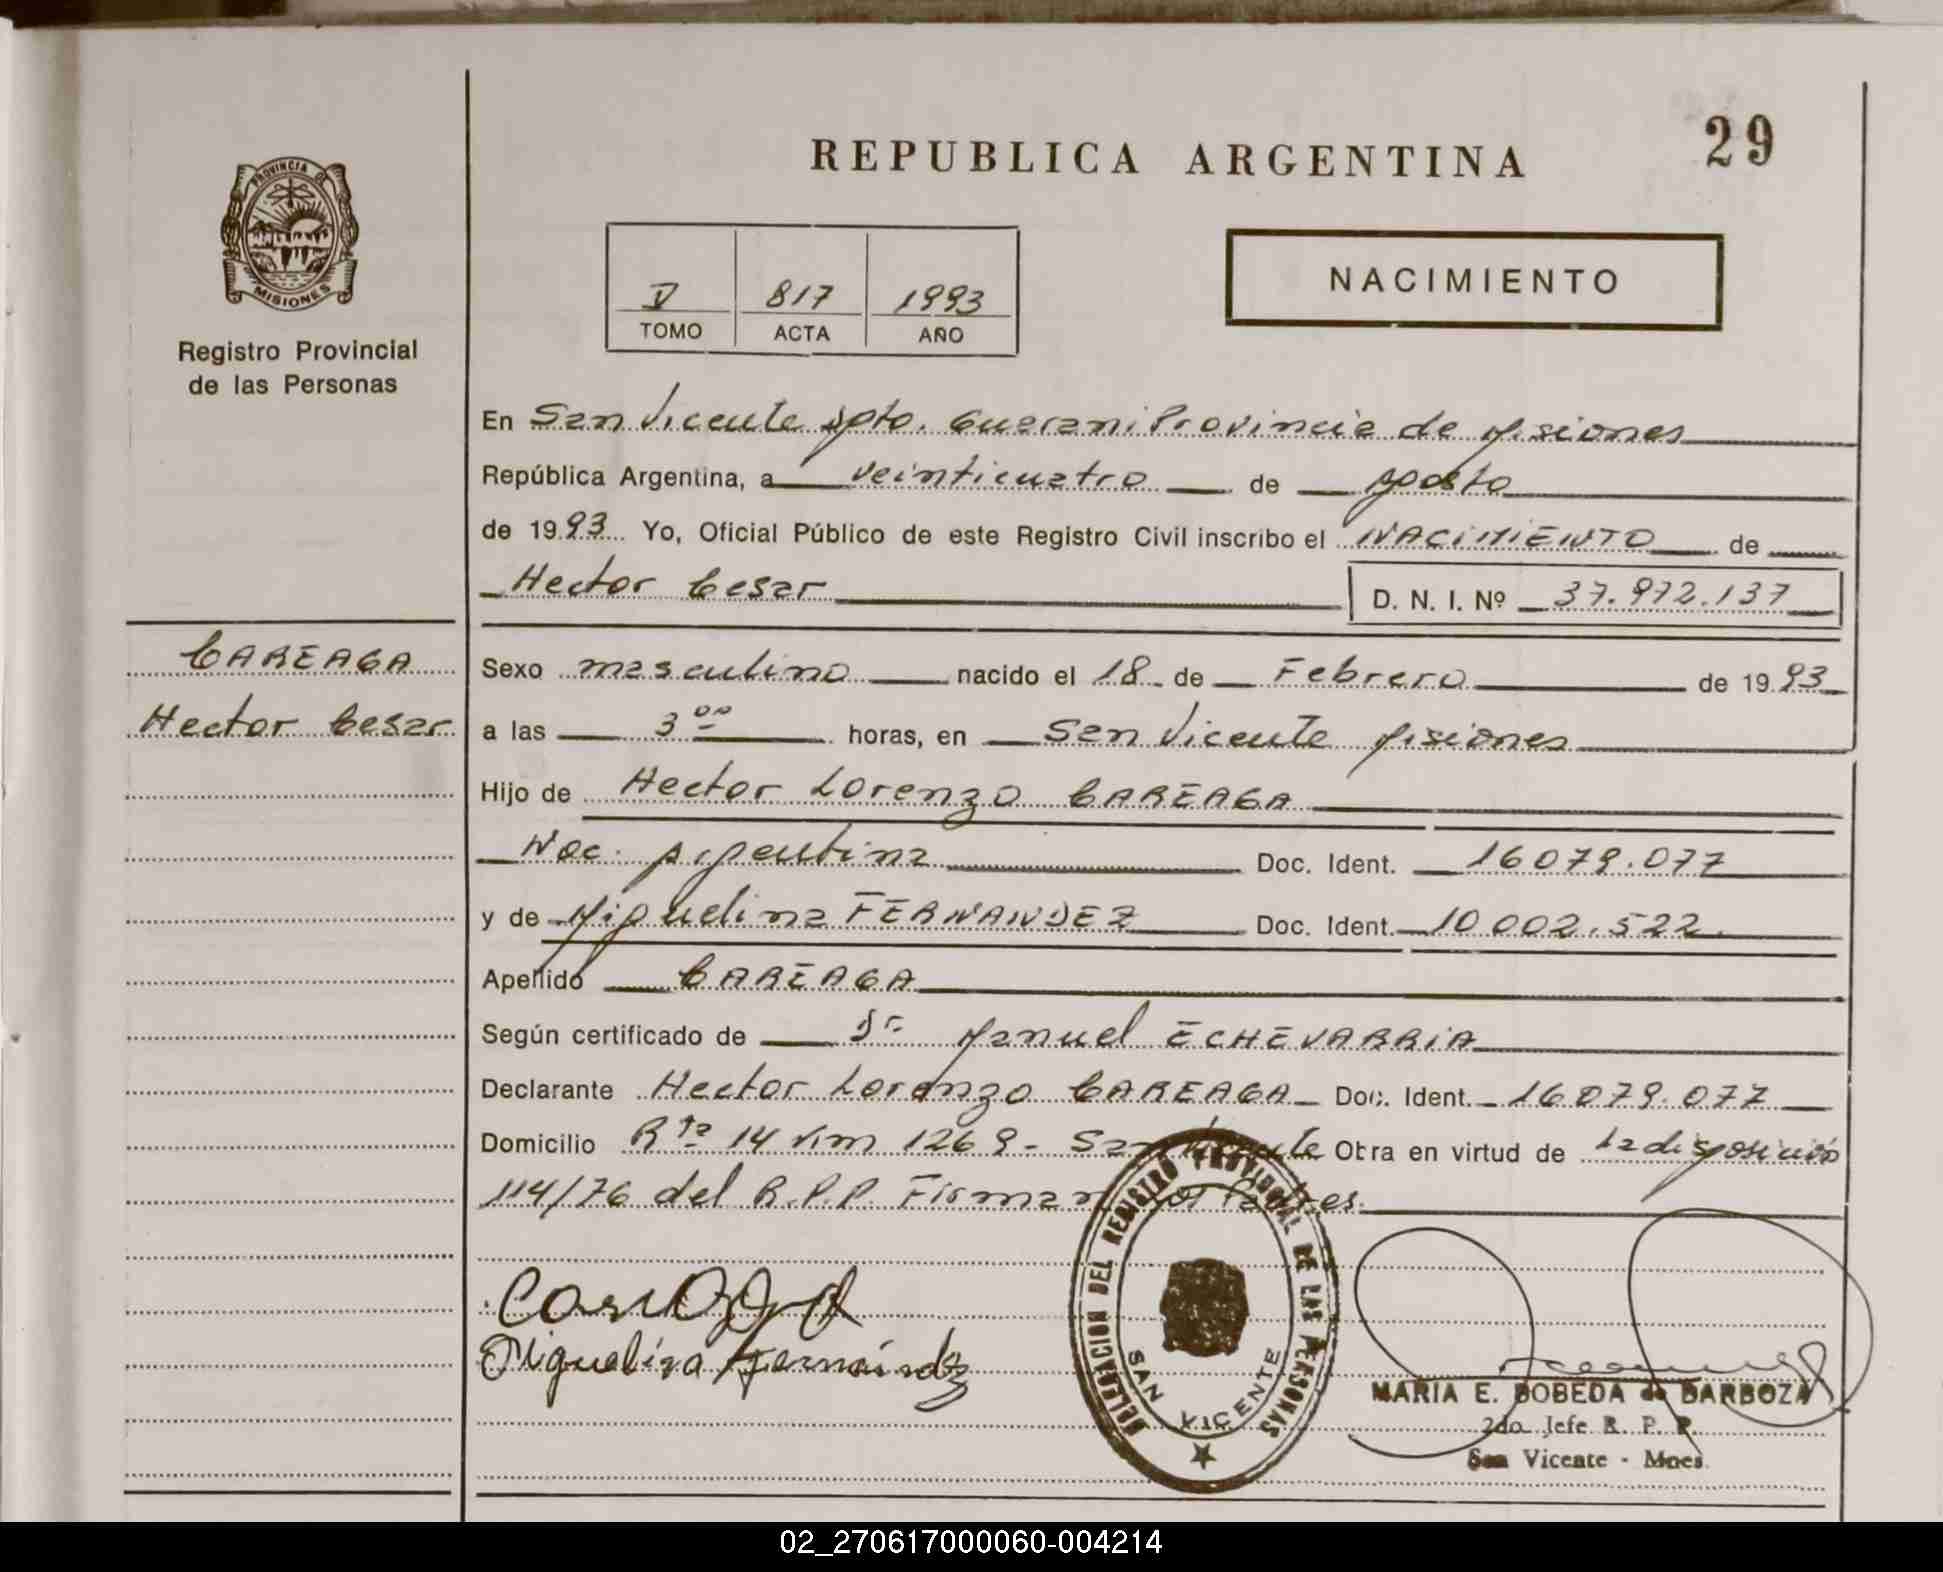 REPUBLICA ARGENTINA
29
PROVINCIA DE
MISIONES
Registro Provincial
de las Personas
V 817 1993
TOMO ACTA AÑO
NACIMIENTO
En San Vicente Dpto. Guarani Provincia de Misiones
República Argentina, a veinticuatro de Agosto
de 1993 Yo, Oficial Público de este Registro Civil inscribo el NACIMIENTO de
Hector Cesar D. N. I. Nº 37.972.137
CAREAGA
Hector Cesar
Sexo masculino nacido el 18 de Febrero de 1993
a las 3 00 horas, en San Vicente Misiones
Hijo de Hector Lorenzo CAREAGA
Nac. Argentina Doc. Ident. 16079.077
y de Miguelina FERNANDEZ Doc. Ident. 10 002.522
Apellido CAREAGA
Según certificado de Dr Manuel ECHEVARRIA
Declarante Hector Lorenzo CAREAGA Doc. Ident. 16079.077
Domicilio Rta 14 Km 1269 - San Vicente Obra en virtud de la disposición
114/76 del R.P.P. Firman los Padres.
Careaga
Miguelina Fernández
DELEGACION DEL REGISTRO PROVINCIAL DE LAS PERSONAS
SAN VICENTE
MARIA E. BOBEDA de BARBOZA
2do Jefe R. P. P.
San Vicente - Mnes.
02_270617000060-004214